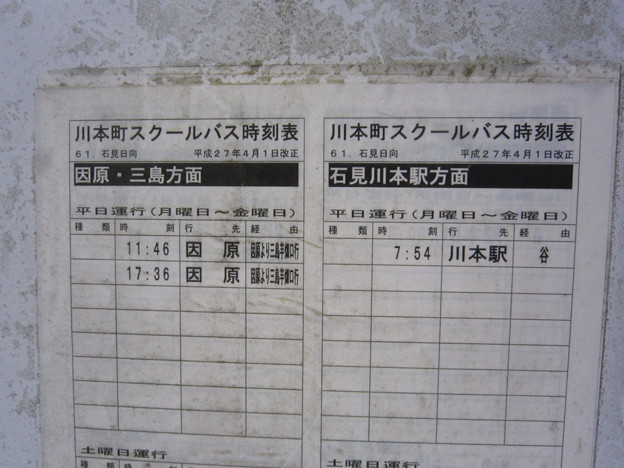 川本町スクールバス時刻表
61. 石見日向 平成27年4月1日改正
因原・三島方面
平日運行(月曜日～金曜日)
種類 時刻 行先 経由
11:46 因原 因原より三島芋畑口行
17:36 因原 因原より三島芋畑口行
土曜日運行
種類 時刻 行先 経由
川本町スクールバス時刻表
61. 石見日向 平成27年4月1日改正
石見川本駅方面
平日運行(月曜日～金曜日)
種類 時刻 行先 経由
7:54 川本駅 谷
土曜日運行
種類 時刻 行先 経由